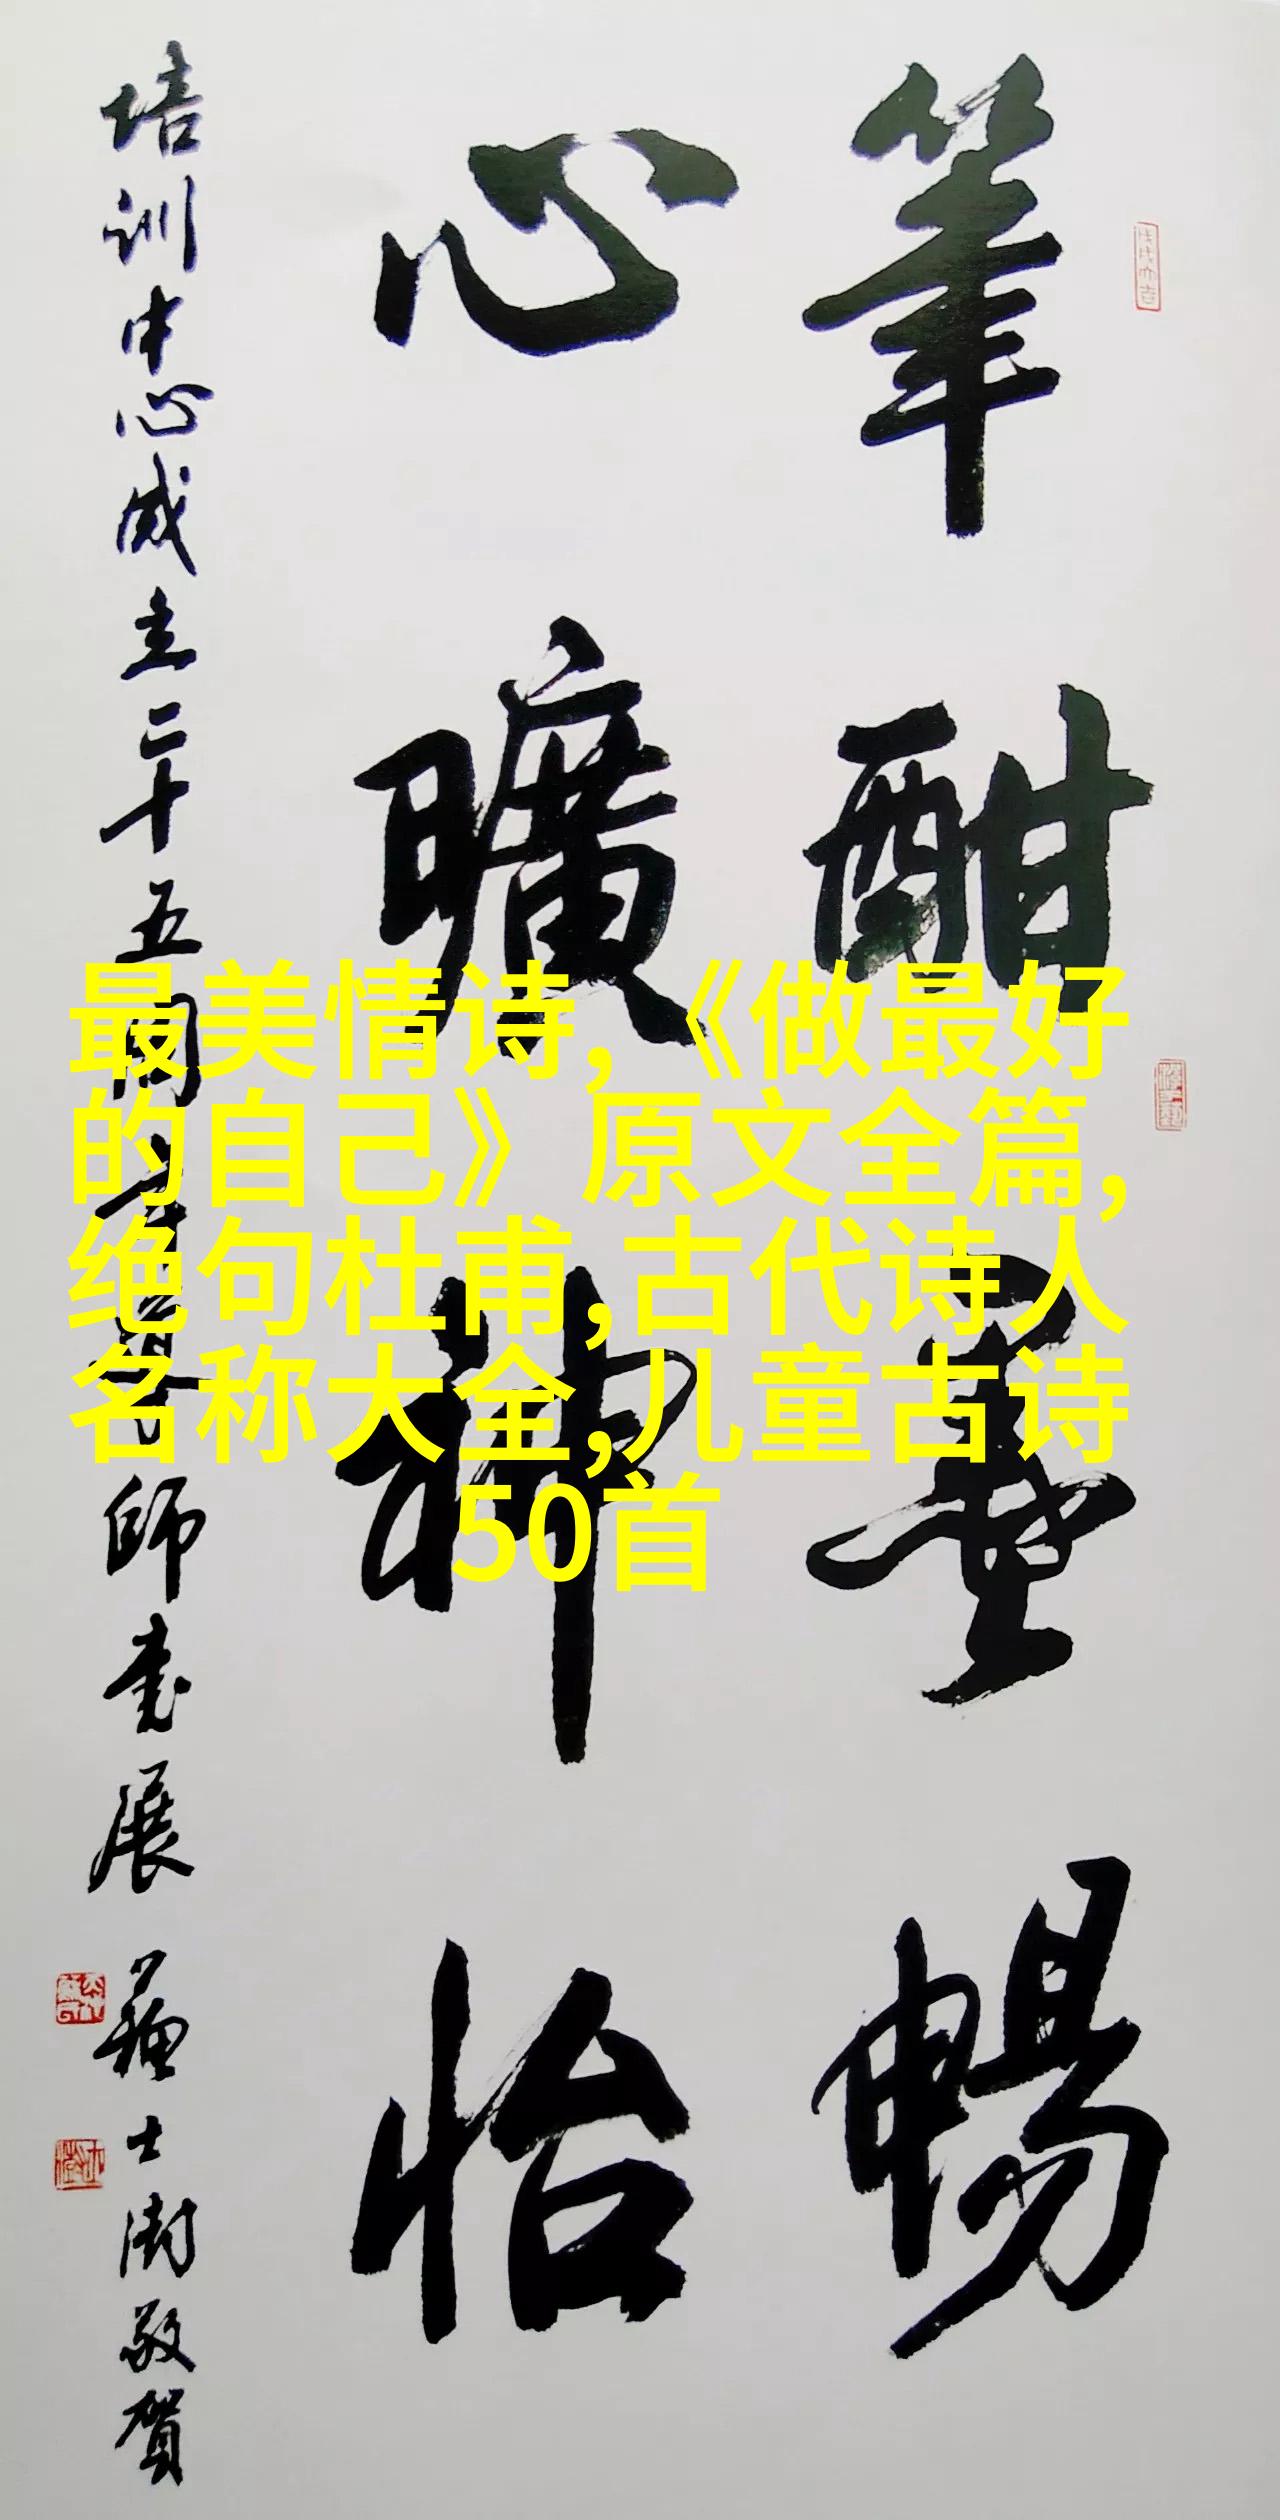 筆酣墨暢
心曠神怡
培训中心成立二十五周年
師書展
士澍敬賀
最美情诗,《做最好
的自己》原文全篇,
绝句杜甫,古代诗人
名称大全,儿童古诗
50首